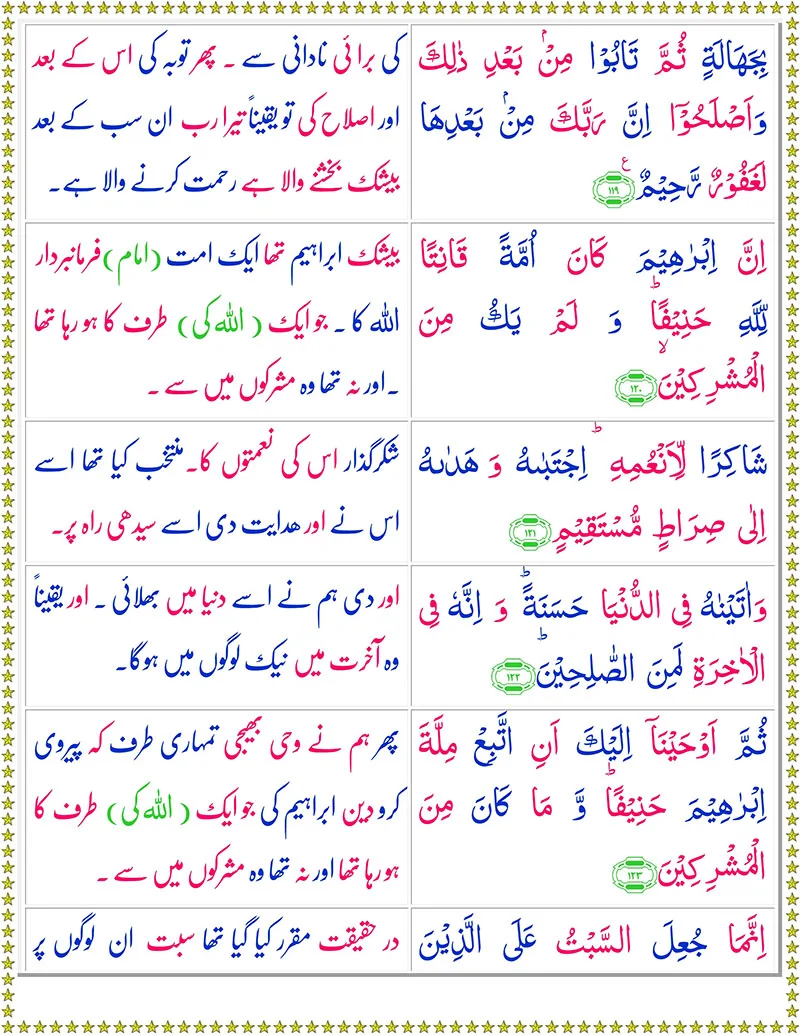 بِجَهَالَةٍ ثُمَّ تَابُوْا مِنْۢ بَعْدِ ذٰلِكَ
وَاَصْلَحُوْۤا اِنَّ رَبَّكَ مِنْۢ بَعْدِهَا
لَغَفُوْرٌ رَّحِيْمٌ ع ۱۱۹
کی برائی نادانی سے ۔ پھر توبہ کی اس کے بعد
اور اصلاح کی تو یقیناً تیرا رب ان سب کے بعد
بیشک بخشنے والا ہے رحمت کرنے والا ہے۔
اِنَّ اِبْرٰهِيْمَ كَانَ اُمَّةً قَانِتًا
لِّلّٰهِ حَنِيْفًاؕ وَ لَمْ يَكُ مِنَ
الْمُشْرِكِيْنَۙ ۱۲۰
بیشک ابراہیم تھا ایک امت (امام) فرمانبردار
اللہ کا ۔ جو ایک (اللہ کی) طرف کا ہو رہا تھا
۔اور نہ تھا وہ مشرکوں میں سے ۔
شَاكِرًا لِّاَنْعُمِهٖؕ اِجْتَبٰىهُ وَ هَدٰىهُ
اِلٰى صِرَاطٍ مُّسْتَقِيْمٍ ۱۲۱
شکرگذار اس کی نعمتوں کا۔ منتخب کیا تھا اسے
اس نے اور ھدایت دی اسے سیدھی راہ پر۔
وَاٰتَيْنٰهُ فِى الدُّنْيَا حَسَنَةًؕ وَ اِنَّهٗ فِى
الْاٰخِرَةِ لَمِنَ الصّٰلِحِيْنَؕ ۱۲۲
اور دی ہم نے اسے دنیا میں بھلائی ۔ اور یقیناً
وہ آخرت میں نیک لوگوں میں ہوگا۔
ثُمَّ اَوْحَيْنَاۤ اِلَيْكَ اَنِ اتَّبِعْ مِلَّةَ
اِبْرٰهِيْمَ حَنِيْفًاؕ وَّ مَا كَانَ مِنَ
الْمُشْرِكِيْنَ ۱۲۳
پھر ہم نے وحی بھیجی تمہاری طرف کہ پیروی
کرو دین ابراہیم کی جو ایک (اللہ کی) طرف کا
ہو رہا تھا اور نہ تھا وہ مشرکوں میں سے ۔
اِنَّمَا جُعِلَ السَّبْتُ عَلَى الَّذِيْنَ
در حقیقت مقرر کیا گیا تھا سبت ان لوگوں پر